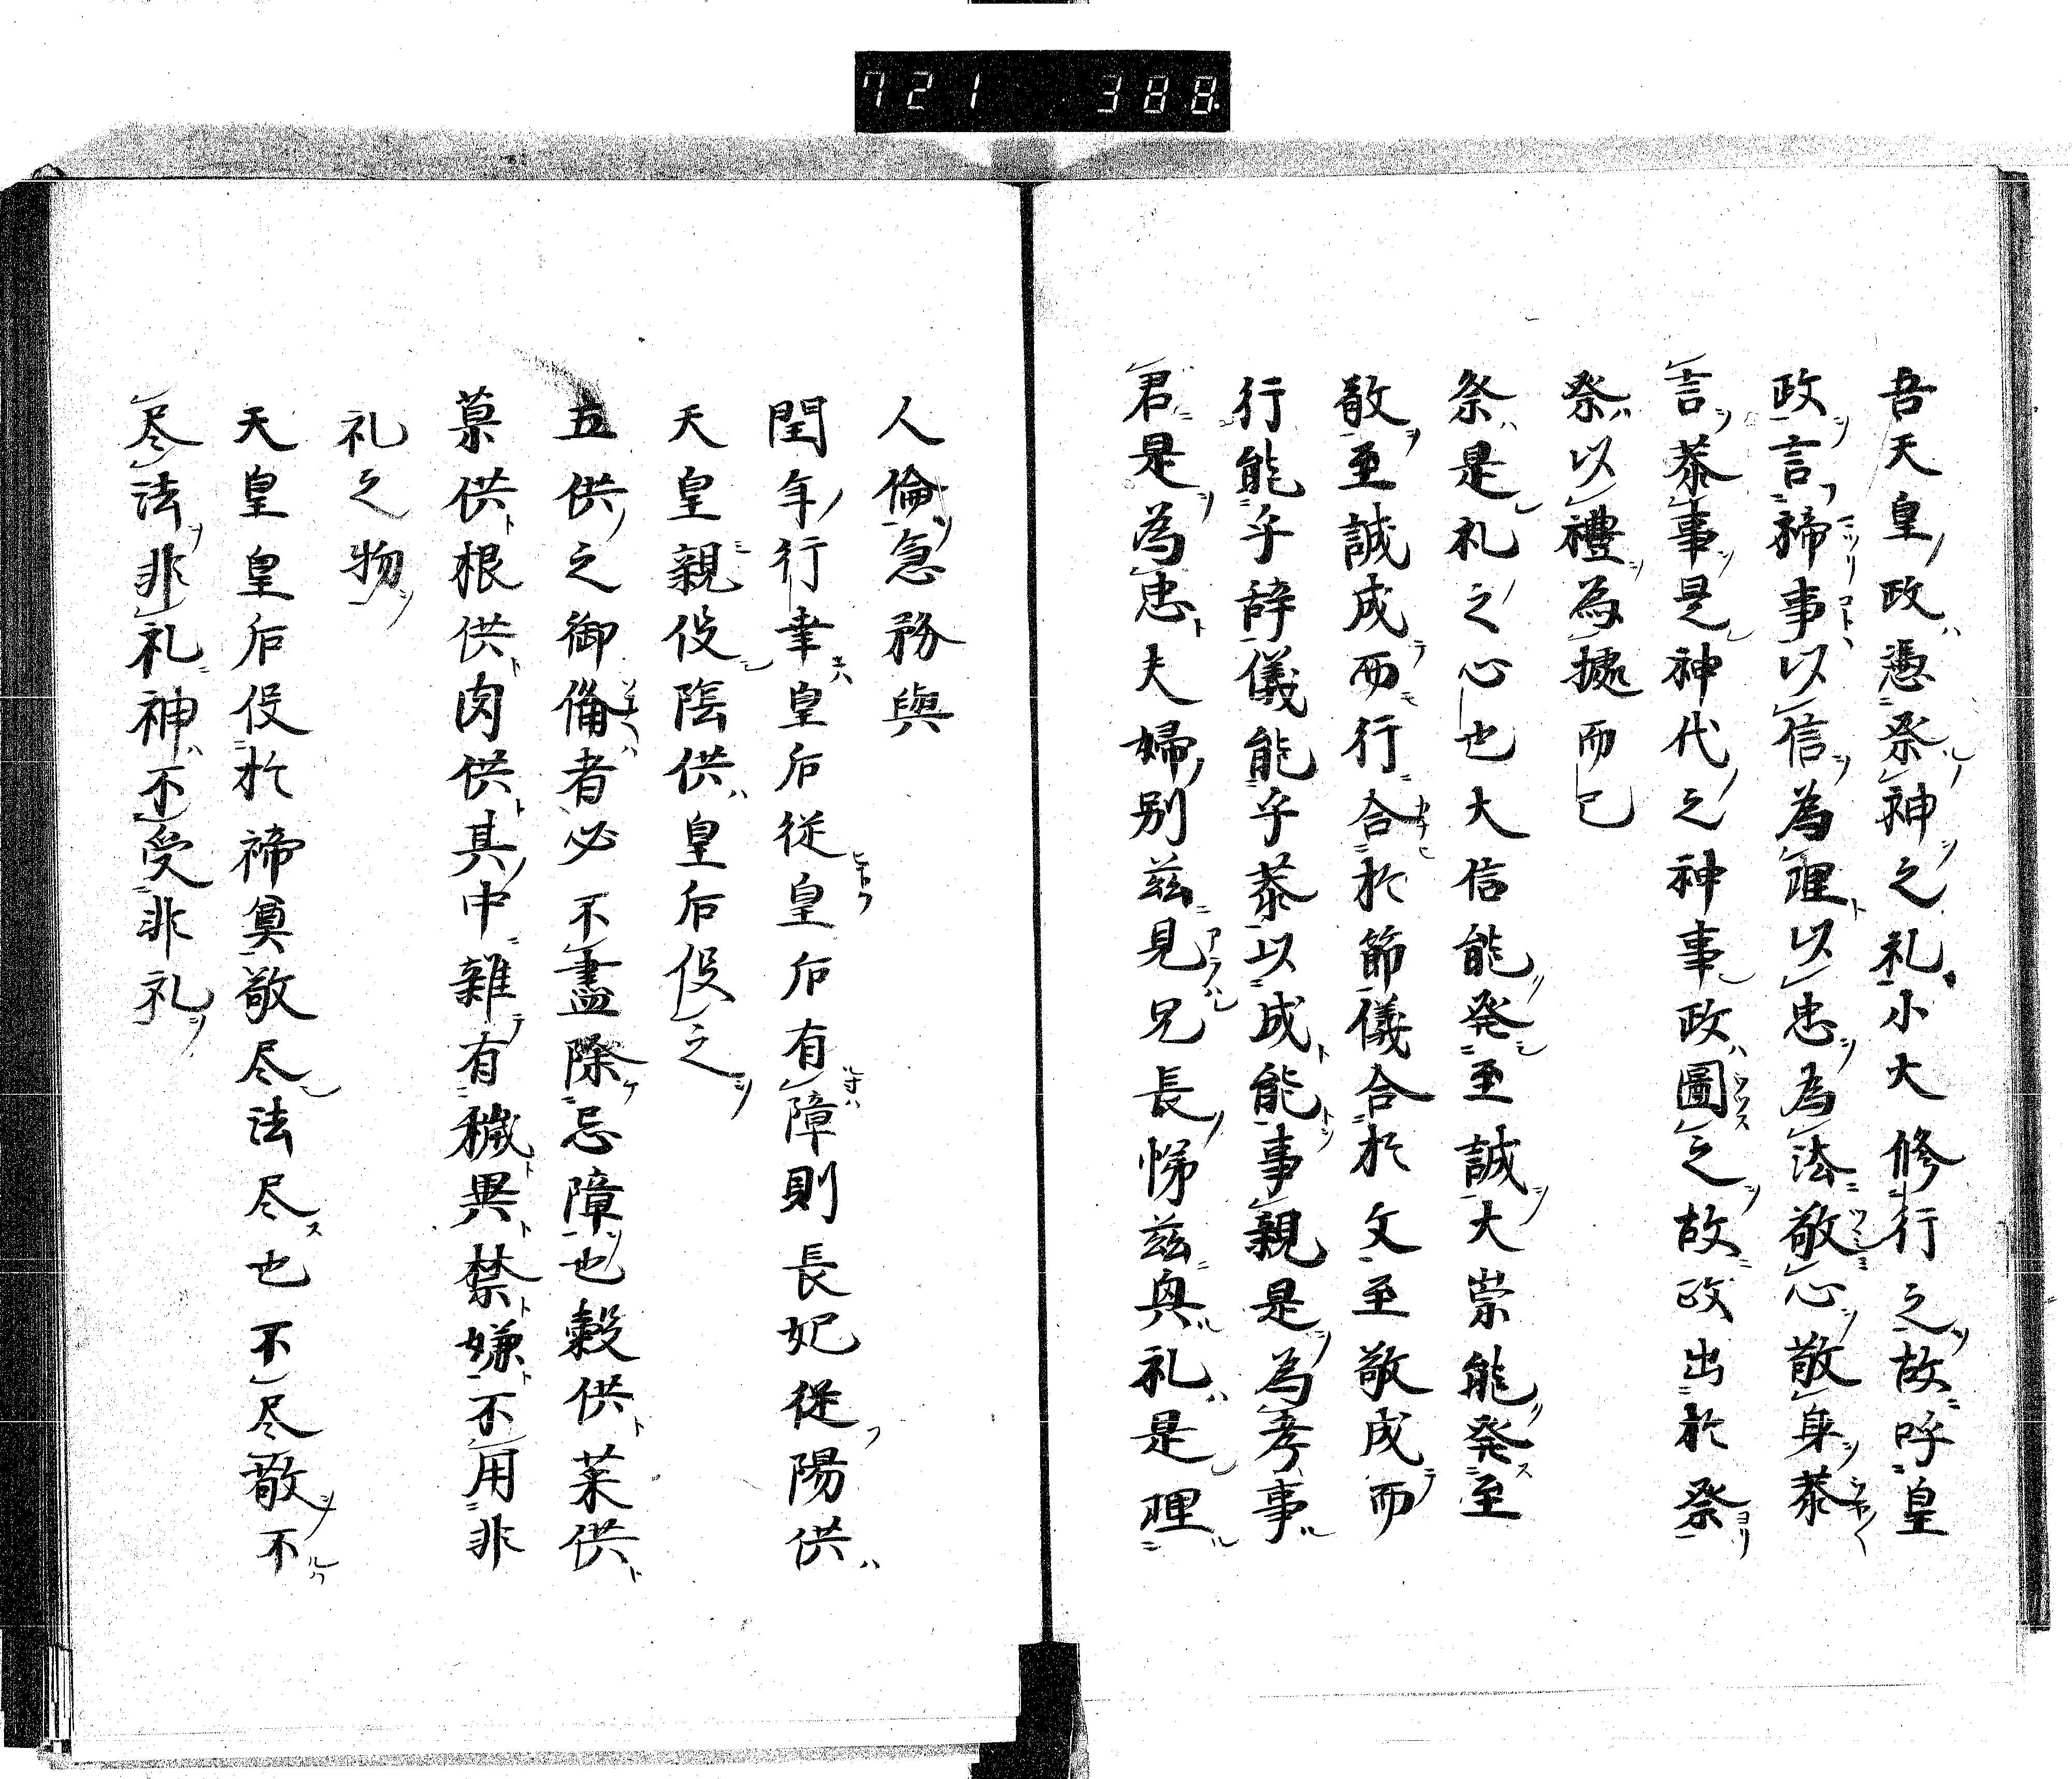 721 388
吾天皇政憑祭神之礼小大修行之故呼皇
政言禘事以信為理以忠為法敬心敬身恭
言恭事是神代之神事政圖之故政出於祭
祭以禮為據而已
祭是礼之心也大信能発至誠大崇能発至
敬至誠成而行合於節儀合於文至敬成而
行能乎辞儀能乎恭以成能事親是為孝事
君是為忠夫婦別茲見兄長悌茲與礼是理
人倫急務與
閏年行幸皇后従皇后有障則長妃従陽供
天皇親役陰供皇后役之
五供之御備者必不盡除忌障也穀供菜供
菓供根供肉供其中雜有穢異禁嫌不用非
礼之物
天皇皇后役於禘奠敬尽法尽也不尽敬不
尽法非礼神不受非礼